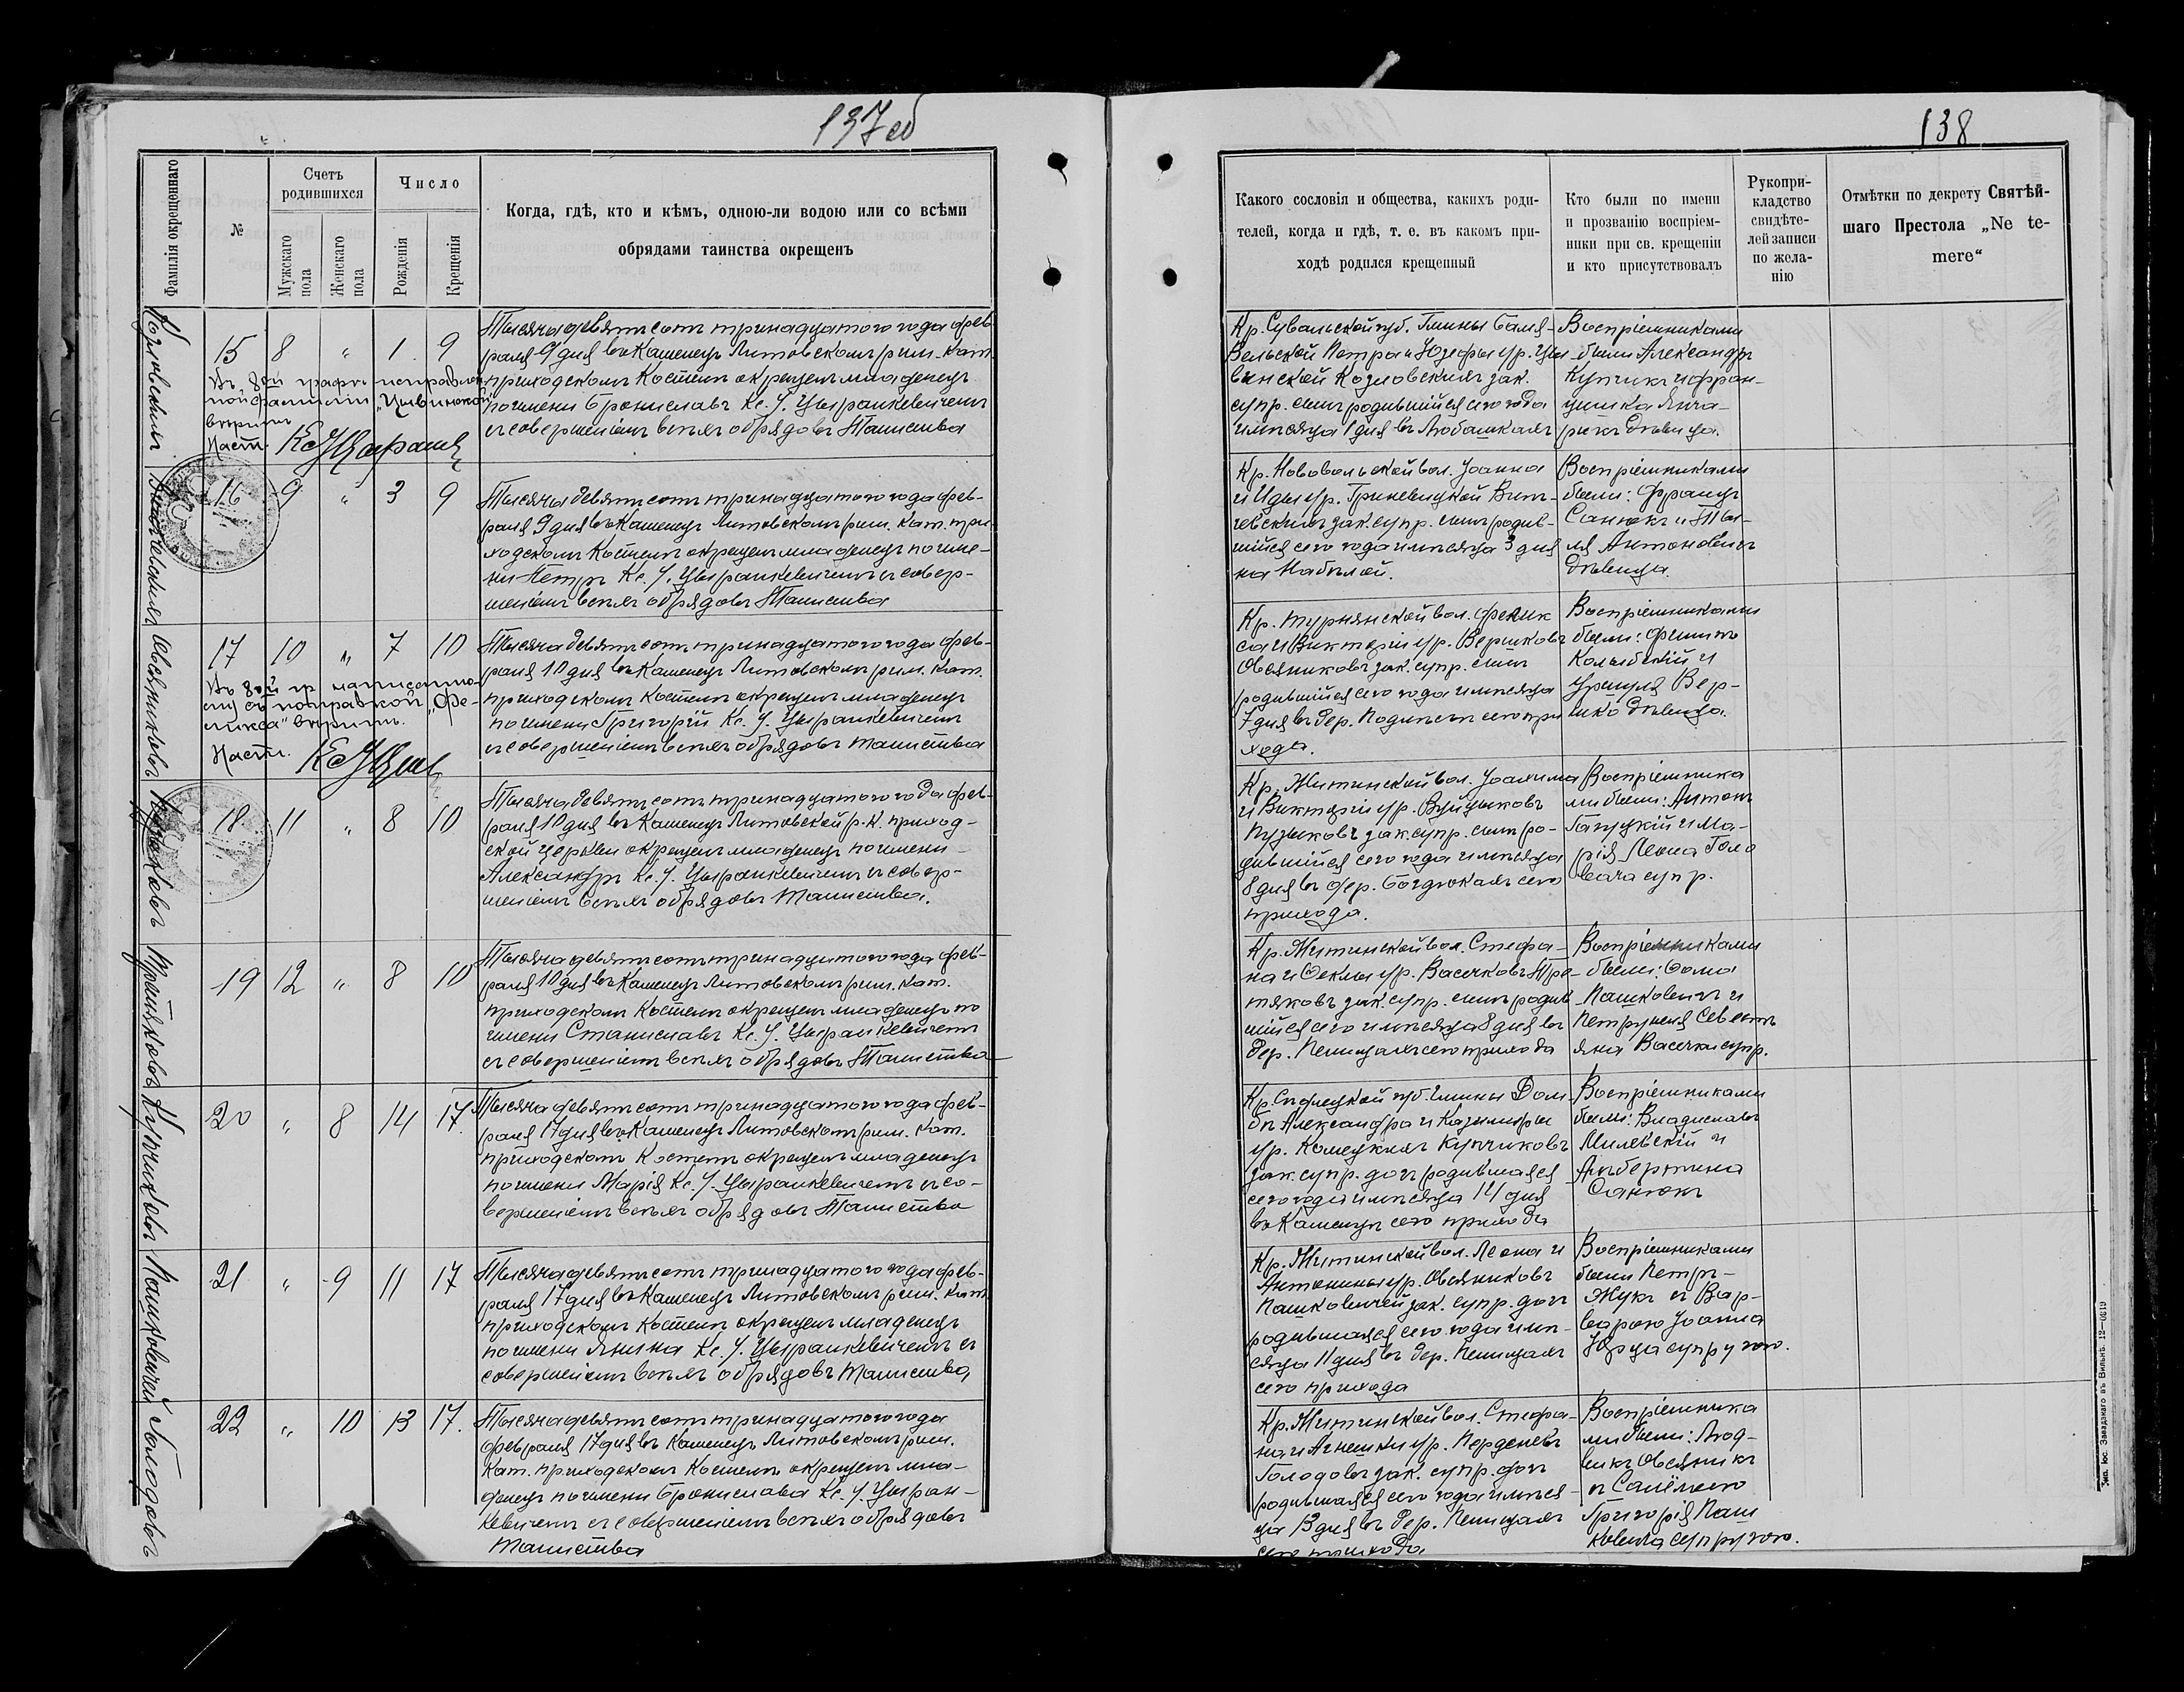 137 об
Фамилія окрещеннаго
№
Счетъ
родившихся
Мужскаго
пола
Женскаго
пола
Число
Рожденія
Крещенія
Когда, гдѣ, кто и кѣмъ, одною-ли водою или со всѣми
обрядами таинства окрещенъ
15 8 " 1 9
Тысяча девятьсотъ тринадцатого года фев-
раля 9 дня въ Каменецъ Литовскомъ рим. кат.
приходскомъ костелѣ окрещенъ младенецъ
по имени Брониславъ Кс. У. Цыранкевичемъ
съ совершеніемъ всѣхъ обрядовъ Таинства
Въ 8ой графѣ исправлен-
ной фамиліи „Цывинской"
вѣрить
Наст.
16 9 " 3 9
Тысяча девятьсотъ тринадцатого года фев-
раля 9 дня въ Каменецъ Литовскомъ рим. кат. при-
ходскомъ костелѣ окрещенъ младенецъ по име-
ни Петръ Кс. У. Цыранкевичемъ съ совер-
шеніемъ всѣхъ обрядовъ Таинства
17 10 " 7 10
Тысяча девятьсотъ тринадцатого года фев-
раля 10 дня въ Каменецъ Литовскомъ рим. кат.
приходскомъ костелѣ окрещенъ младенецъ
по имени Григорій Кс. У. Цыранкевичемъ
съ совершеніемъ всѣхъ обрядовъ Таинства
Въ 8ой гр. написанно-
му съ поправкой „Фе-
ликса" вѣрить.
Наст.
18 11 " 8 10
Тысяча девятьсотъ тринадцатого года фев-
раля 10 дня въ Каменецъ Литовской р. к. приход-
ской церкви окрещенъ младенецъ по имени
Александръ Кс. У. Цыранкевичемъ съ совер-
шеніемъ всѣхъ обрядовъ Таинства.
19 12 " 8 10
Тысяча девятьсотъ тринадцатого года фев-
раля 10 дня въ Каменецъ Литовскомъ рим. кат.
приходскомъ костелѣ окрещенъ младенецъ по
имени Станиславъ Кс. У. Цыранкевичемъ
съ совершеніемъ всѣхъ обрядовъ Таинства
20 " 8 14 17.
Тысяча девятьсотъ тринадцатого года фев-
раля 17 дня въ Каменецъ Литовскомъ рим. кат.
приходскомъ костелѣ окрещенъ младенецъ
по имени Марія Кс. У. Цыранкевичемъ съ со-
вершеніемъ всѣхъ обрядовъ Таинства
21 " 9 11 17
Тысяча девятьсотъ тринадцатого года фев-
раля 17 дня въ Каменецъ Литовскомъ рим. кат.
приходскомъ костелѣ окрещенъ младенецъ
по имени Янина Кс. У. Цыранкевичемъ съ
совершеніемъ всѣхъ обрядовъ Таинства
22 " 10 13 17.
Тысяча девятьсотъ тринадцатого года
февраля 17 дня въ Каменецъ Литовскомъ рим.
кат. приходскомъ костелѣ окрещенъ мла-
денецъ по имени Бронислава Кс. У. Цыран-
кевичемъ съ совершеніемъ всѣхъ обрядовъ
Таинства
Козловскихъ
Овсяниковъ
Пузыковъ
Протяковъ
Купчиковъ
Пашковичей
Голодовъ
138
Какого сословія и общества, какихъ роди-
телей, когда и гдѣ, т. е. въ какомъ при-
ходѣ родился крещенный
Кто были по имени
и прозванію воспріем-
ники при св. крещеніи
и кто присутствовалъ
Рукопри-
кладство
свидѣте-
лей записи
по жела-
нію
Отмѣтки по декрету Святѣй-
шаго Престола „Ne te-
mere"
Кр. Сувальской губ. Гмины
Петра и Юзефы ур. Цы-
винской Козловскихъ зак.
супр. сынъ родившійся сего года
и мѣсяца 1 дня въ Любашкахъ
Воспріемниками
были Александръ
Купчикъ и Фран-
цишка
дѣвица.
Кр. Нововольской вол. Іоанна
и Иды ур. Гриневицкой
зак. супр. сынъ родив-
шійся сего года и мѣсяца 3 дня
на
Воспріемниками
были: Францъ
Санюкъ и
Антоновичъ
дѣвица.
Кр. Турнянской вол. Феликса
и Викторіи ур. Вершковъ
Овсяниковъ зак. супр. сынъ
родившійся сего года и мѣсяца
7 дня въ дер. сего при-
хода.
Воспріемниками
были: Филипъ
и
Уршуля Вер-
шко дѣвица.
Кр. Житинской вол. Іоахима
и Викторіи ур.
Пузыковъ зак. супр. сынъ ро-
дившійся сего года и мѣсяца
8 дня въ дер. Богдюкахъ сего
прихода.
Воспріемника-
ми были: Антонъ
и Ма-
рія Леона Голо-
вача супр.
Кр. Житинской вол. Стефа-
на и Ѳеклы ур. Васечковъ Про-
тяковъ зак. супр. сынъ родив-
шійся сего и мѣсяца 8 дня въ
дер. Пенищахъ сего прихода
Воспріемниками
были: Ѳома
Пашковичъ и
Петрунеля Севасть-
яна Васечки супр.
Кр. Сѣдлецкой губ. Гмины
Александра и Казимиры
ур. Купчиковъ
зак. супр. дочь родившаяся
сего года и мѣсяца 14 дня
въ Каменцѣ сего прихода
Воспріемниками
были: Владиславъ
Милевскій и
Альбертина
Санюкъ
Кр. Житинской вол. Леона и
Антонины ур. Овсяниковъ
Пашковичей зак. супр. дочь
родившаяся сего года и мѣ-
сяца 11 дня въ дер. Пенищахъ
сего прихода
Воспріемниками
были Петръ
Жукъ съ Вар-
варою Іоанна
супругою.
Кр. Житинской вол. Стефа-
на и Агнешки ур.
Голодовъ зак. супр. дочь
родившаяся сего года и мѣся-
ца 13 дня въ дер. Пенищахъ
сего прихода
Воспріемника-
ми были: Люд-
викъ Овсяникъ
съ Саломеею
Григорія Паш-
ковича супругою.